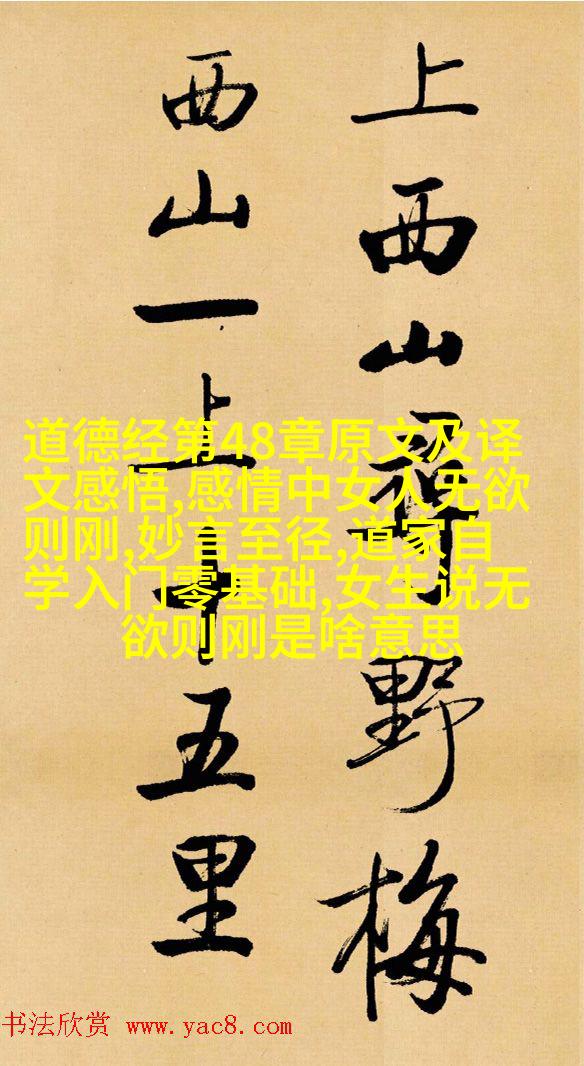 上西山尋野梅
西山一上十五里
道德经第48章原文及译
文感悟,感情中女人无欲
则刚,妙言至径,道家自
学入门零基础,女生说无
欲则刚是啥意思
书法欣赏 www.yac8.com